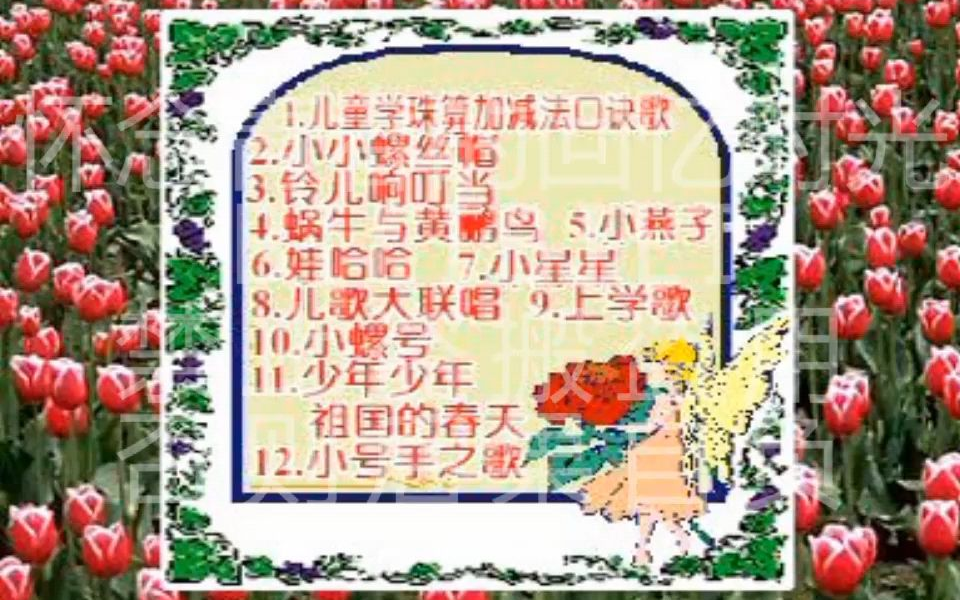 1.儿童学珠算加减法口诀歌
2.小小螺丝帽
3.铃儿响叮当
4.蜗牛与黄鹂鸟 5.小燕子
6.娃哈哈 7.小星星
8.儿歌大联唱 9.上学歌
10.小螺号
11.少年少年
祖国的春天
12.小号手之歌